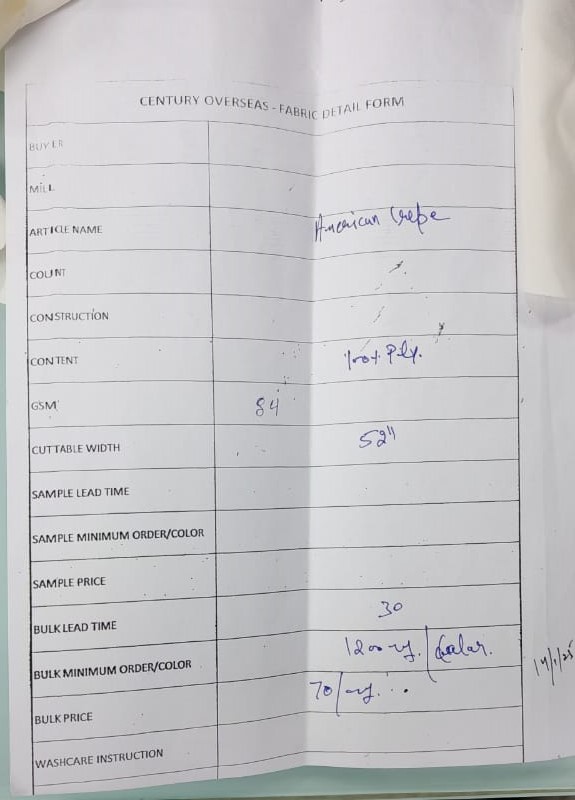 CENTURY OVERSEAS - FABRIC DETAIL FORM
BUYER
MILL
ARTICLE NAME American Crepe
COUNT
CONSTRUCTION
CONTENT 100% Ply.
GSM 84
CUTTABLE WIDTH 52"
SAMPLE LEAD TIME
SAMPLE MINIMUM ORDER/COLOR
SAMPLE PRICE
BULK LEAD TIME 30
BULK MINIMUM ORDER/COLOR 1200
BULK PRICE 70/
WASHCARE INSTRUCTION